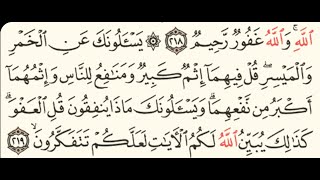 ٱللَّهِ ۚ وَٱللَّهُ غَفُورٌ رَّحِيمٌ ۝٢١٨ ۞ يَسْـَٔلُونَكَ عَنِ ٱلْخَمْرِ
وَٱلْمَيْسِرِ ۖ قُلْ فِيهِمَآ إِثْمٌ كَبِيرٌ وَمَنَـٰفِعُ لِلنَّاسِ وَإِثْمُهُمَآ
أَكْبَرُ مِن نَّفْعِهِمَا ۗ وَيَسْـَٔلُونَكَ مَاذَا يُنفِقُونَ قُلِ ٱلْعَفْوَ ۗ
كَذَٰلِكَ يُبَيِّنُ ٱللَّهُ لَكُمُ ٱلْـَٔايَـٰتِ لَعَلَّكُمْ تَتَفَكَّرُونَ ۝٢١٩